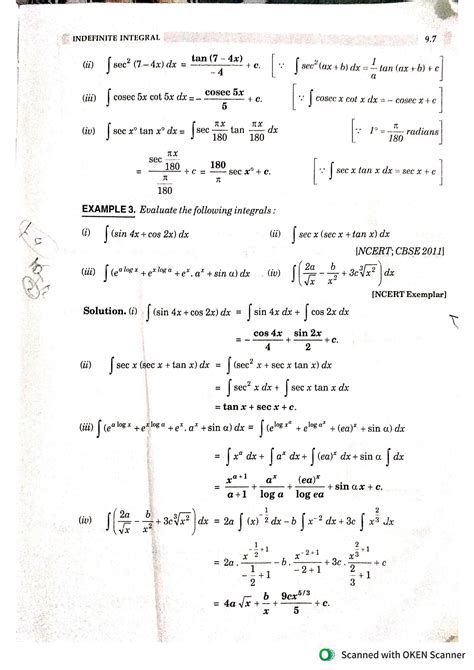 INDEFINITE INTEGRAL 9.7
(ii) ∫ sec² (7 – 4x) dx = tan (7 – 4x) / – 4 + c. [∵ ∫ sec² (ax + b) dx = 1/a tan (ax + b) + c]
(iii) ∫ cosec 5x cot 5x dx = – cosec 5x / 5 + c. [∵ ∫ cosec x cot dx = – cosec x + c]
(iv) ∫ sec x° tan x° dx = ∫ sec πx/180 tan πx/180 dx [∵ 1° = π/180 radians]
= sec πx/180 / π/180 + c = 180/π sec x° + c. [∵ ∫ sec x tan x dx = sec x + c]
EXAMPLE 3. Evaluate the following integrals :
(i) ∫ (sin 4x + cos 2x) dx (ii) ∫ sec x (sec x + tan x) dx
[NCERT; CBSE 2011]
(iii) ∫ (e^(a log x) + e^(x log a) + e^x . a^x + sin α) dx (iv) ∫ (2a/√x – b/x² + 3c ∛x²) dx
[NCERT Exemplar]
Solution. (i) ∫ (sin 4x + cos 2x) dx = ∫ sin 4x dx + ∫ cos 2x dx
= – cos 4x / 4 + sin 2x / 2 + c.
(ii) ∫ sec x (sec x + tan x) dx = ∫ (sec² x + sec x tan x) dx
= ∫ sec² x dx + ∫ sec x tan x dx
= tan x + sec x + c.
(iii) ∫ (e^(a log x) + e^(x log a) + e^x . a^x + sin α) dx = ∫ (e^(log x^a) + e^(log a^x) + (ea)^x + sin α) dx
= ∫ x^a dx + ∫ a^x dx + ∫ (ea)^x dx + sin α ∫ dx
= x^(a+1) / a+1 + a^x / log a + (ea)^x / log ea + sin α x + c.
(iv) ∫ (2a/√x – b/x² + 3c ∛x²) dx = 2a ∫ (x)^(–1/2) dx – b ∫ x^(–2) dx + 3c ∫ x^(2/3) dx
= 2a . x^(–1/2 + 1) / –1/2 + 1 – b . x^(–2+1) / –2+1 + 3c . x^(2/3 + 1) / 2/3 + 1 + c
= 4a √x + b/x + 9cx^(5/3) / 5 + c.
Scanned with OKEN Scanner